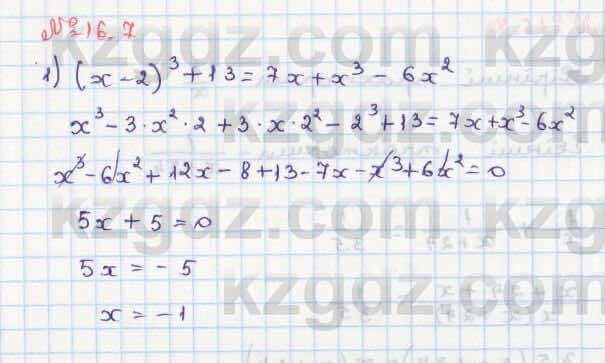 № 16.7
1) (x-2)³+13=7x+x³-6x²
x³-3·x²·2+3·x·2²-2³+13=7x+x³-6x²
x³-6x²+12x-8+13-7x-x³+6x²=0
5x+5=0
5x=-5
x=-1
kzgdz.com